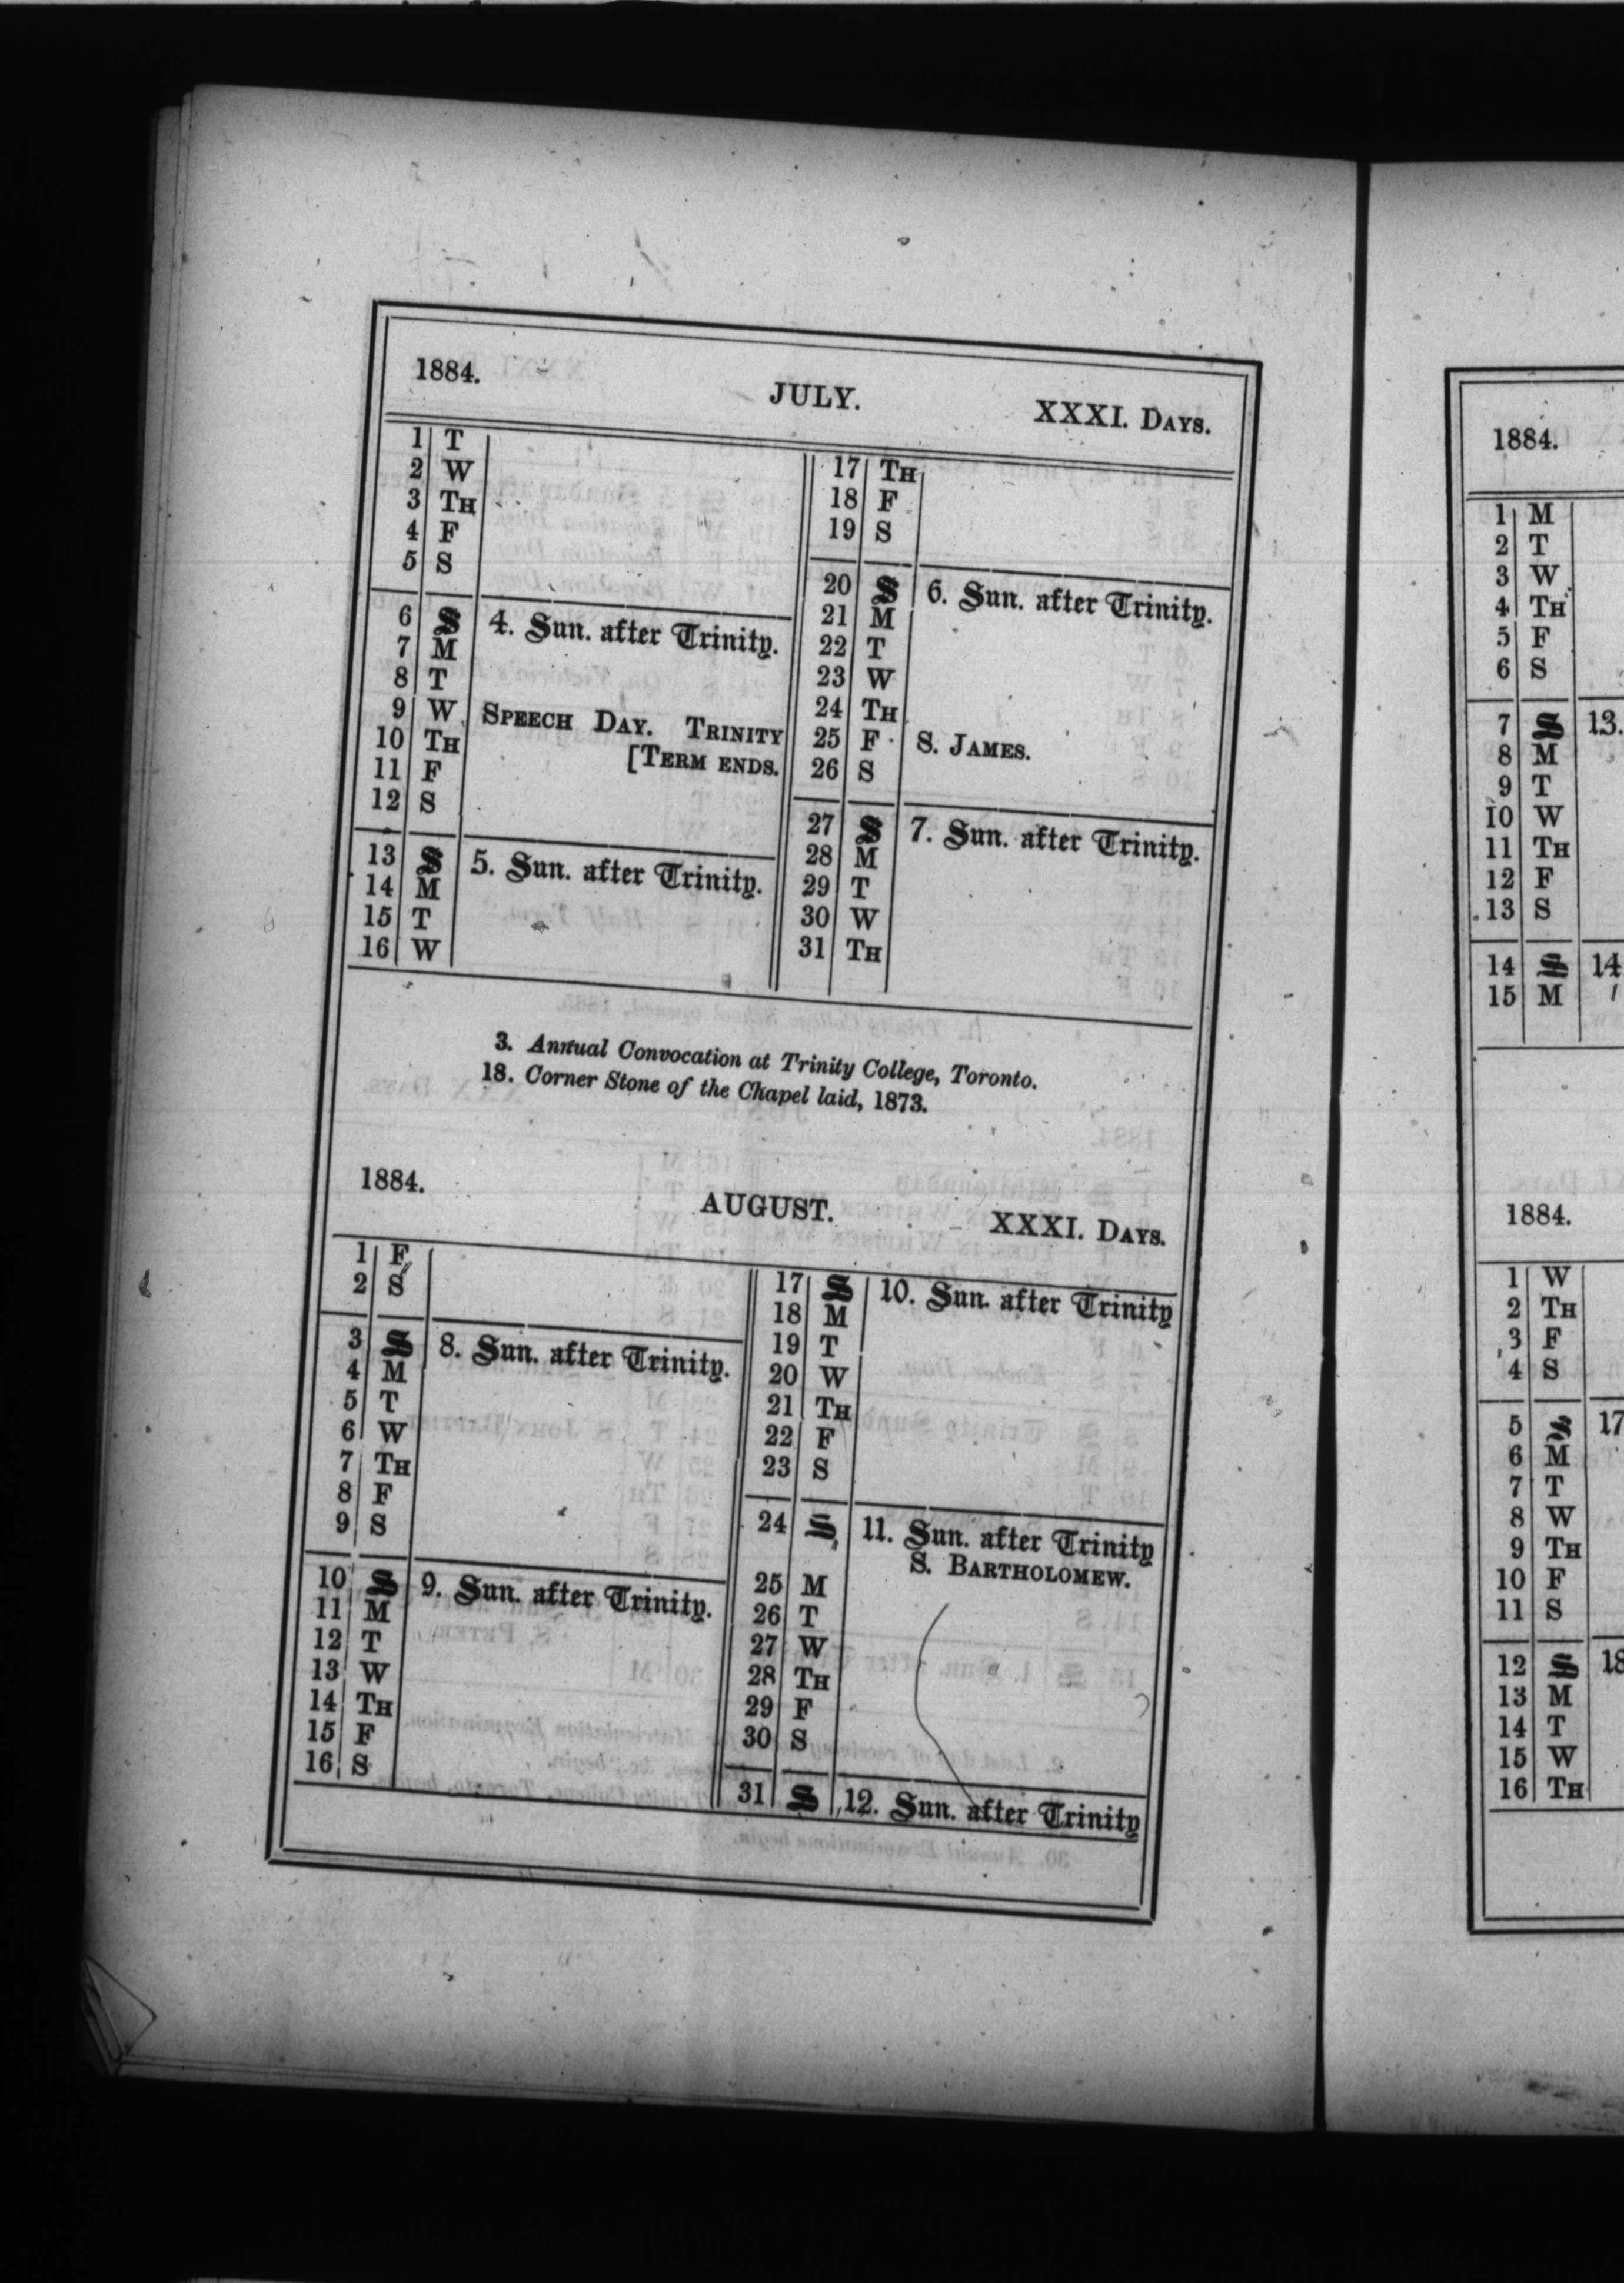 1884. JULY. XXXI. DAYS.
1 T
2 W
3 TH
4 F
5 S
6 S 4. Sun. after Trinity.
7 M
8 T
9 W SPEECH DAY. TRINITY
10 TH [TERM ENDS.
11 F
12 S
13 S 5. Sun. after Trinity.
14 M
15 T
16 W
17 TH
18 F
19 S
20 S 6. Sun. after Trinity.
21 M
22 T
23 W
24 TH
25 F S. JAMES.
26 S
27 S 7. Sun. after Trinity.
28 M
29 T
30 W
31 TH
3. Annual Convocation at Trinity College, Toronto.
18. Corner Stone of the Chapel laid, 1873.
1884. AUGUST. XXXI. DAYS.
1 F
2 S
3 S 8. Sun. after Trinity.
4 M
5 T
6 W
7 TH
8 F
9 S
10 S 9. Sun. after Trinity.
11 M
12 T
13 W
14 TH
15 F
16 S
17 S 10. Sun. after Trinity
18 M
19 T
20 W
21 TH
22 F
23 S
24 S 11. Sun. after Trinity
S. BARTHOLOMEW.
25 M
26 T
27 W
28 TH
29 F
30 S
31 S 12. Sun. after Trinity
1884.
1 M
2 T
3 W
4 TH
5 F
6 S
7 S 13.
8 M
9 T
10 W
11 TH
12 F
13 S
14 S 14
15 M
1884.
1 W
2 TH
3 F
4 S
5 S 17
6 M
7 T
8 W
9 TH
10 F
11 S
12 S 18
13 M
14 T
15 W
16 TH